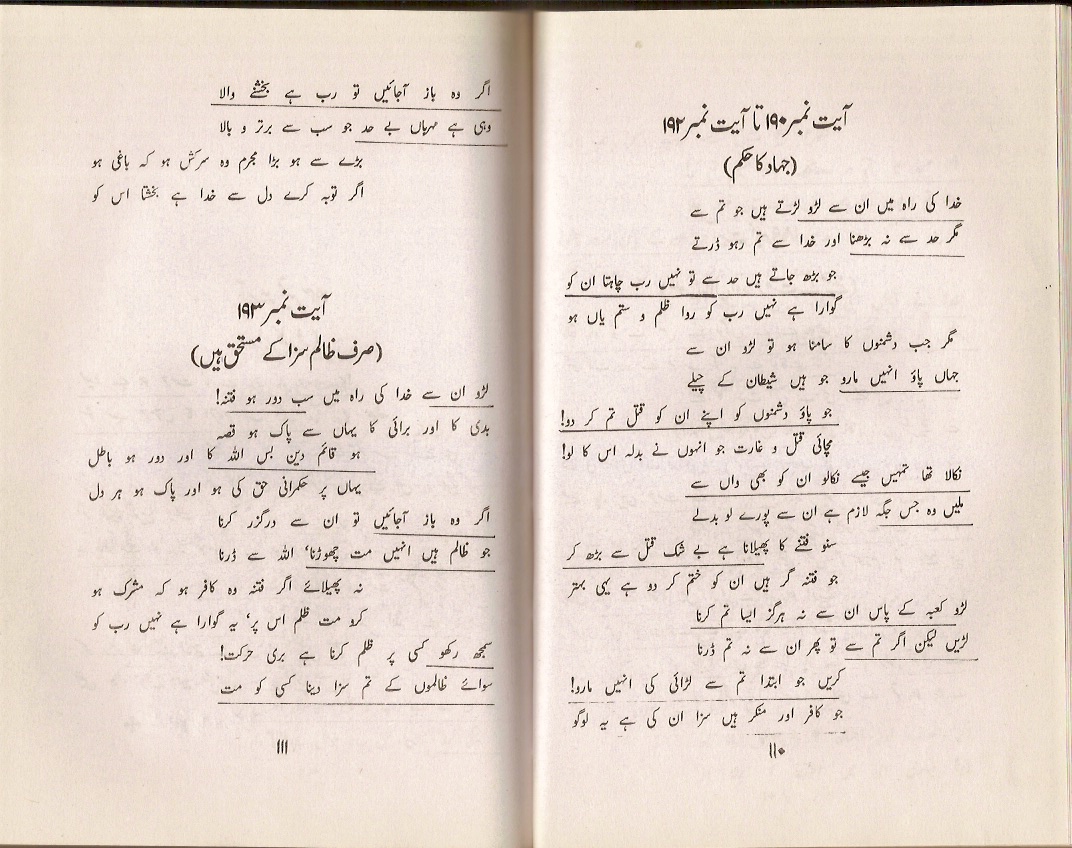 آیت نمبر ۱۹۰ تا آیت نمبر ۱۹۲
(جہاد کا حکم)
خدا کی راہ میں ان سے لڑو لڑتے ہیں جو تم سے
مگر حد سے نہ بڑھنا اور خدا سے تم رہو ڈرتے
جو بڑھ جاتے ہیں حد سے تو نہیں رب چاہتا ان کو
گوارا ہے نہیں رب کو روا ظلم و ستم یاں ہو
مگر جب دشمنوں کا سامنا ہو تو لڑو ان سے
جہاں پاؤ انہیں مارو جو ہیں شیطان کے چیلے
جو پاؤ دشمنوں کو اپنے ان کو قتل تم کر دو!
مچائی قتل و غارت جو انہوں نے بدلہ اس کا لو!
نکالا تھا تمہیں جیسے نکالو ان کو بھی واں سے
ملیں وہ جس جگہ لازم ہے ان سے پورے لو بدلے
سنو فتنے کا پھیلانا ہے بے شک قتل سے بڑھ کر
جو فتنہ گر ہیں ان کو ختم کر دو ہے یہی بہتر
لڑو کعبہ کے پاس ان سے نہ ہرگز ایسا تم کرنا
لڑیں لیکن اگر تم سے تو پھر ان سے نہ تم ڈرنا
کریں جو ابتدا تم سے لڑائی کی انہیں مارو!
جو کافر اور منکر ہیں سزا ان کی ہے یہ لوگو
۱۱۰
اگر وہ باز آجائیں تو رب ہے بخشنے والا
وہی ہے مہرباں بے حد جو سب سے برتر و بالا
بڑے سے ہو بڑا مجرم وہ سرکش ہو کہ باغی ہو
اگر توبہ کرے دل سے خدا ہے بخشتا اس کو
آیت نمبر ۱۹۳
(صرف ظالم سزا کے مستحق ہیں)
لڑو ان سے خدا کی راہ میں سب دور ہو فتنہ!
بدی کا اور برائی کا یہاں سے پاک ہو قصہ
ہو قائم دین بس اللہ کا اور دور ہو باطل
یہاں پر حکمرانی حق کی ہو اور پاک ہو ہر دل
اگر وہ باز آجائیں تو ان سے درگزر کرنا
جو ظالم ہیں انہیں مت چھوڑنا، اللہ سے ڈرنا
نہ پھیلائے اگر فتنہ وہ کافر ہو کہ مشرک ہو
کرو مت ظلم اس پر، یہ گوارا ہے نہیں رب کو
سمجھ رکھو کسی پر ظلم کرنا ہے بری حرکت!
سوائے ظالموں کے تم سزا دینا کسی کو مت
۱۱۱